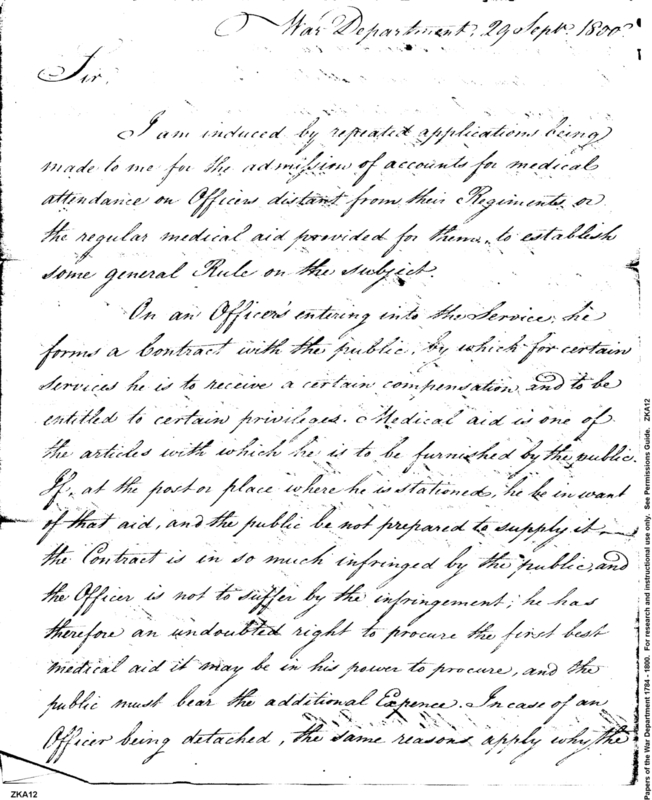 War Department, 29 Sept. 1800.
Sir,
I am induced by repeated applications being
made to me for the admission of accounts for medical
attendance on Officers distant from their Regiments or
the regular medical aid provided for them, to establish
some general Rule on the subject
On an Officer's entering into the Service, he
forms a Contract with the public, by which for certain
services he is to receive a certain compensation and to be
entitled to certain privileges. Medical aid is one of
the articles with which he is to be furnished by the public.
If, at the post or place where he is stationed, he be in want
of that aid, and the public be not prepared to supply it
the Contract is in so much infringed by the public, and
the Officer is not to suffer by the infringement; he has
therefore an undoubted right to procure the first best
medical aid it may be in his power to procure, and the
public must bear the additional Expence. In case of an
Officer being detached, the same reasons apply why the
ZKA12
Papers of the War Department 1784 - 1800. For research and instructional use only. See Permissions Guide. ZKA12